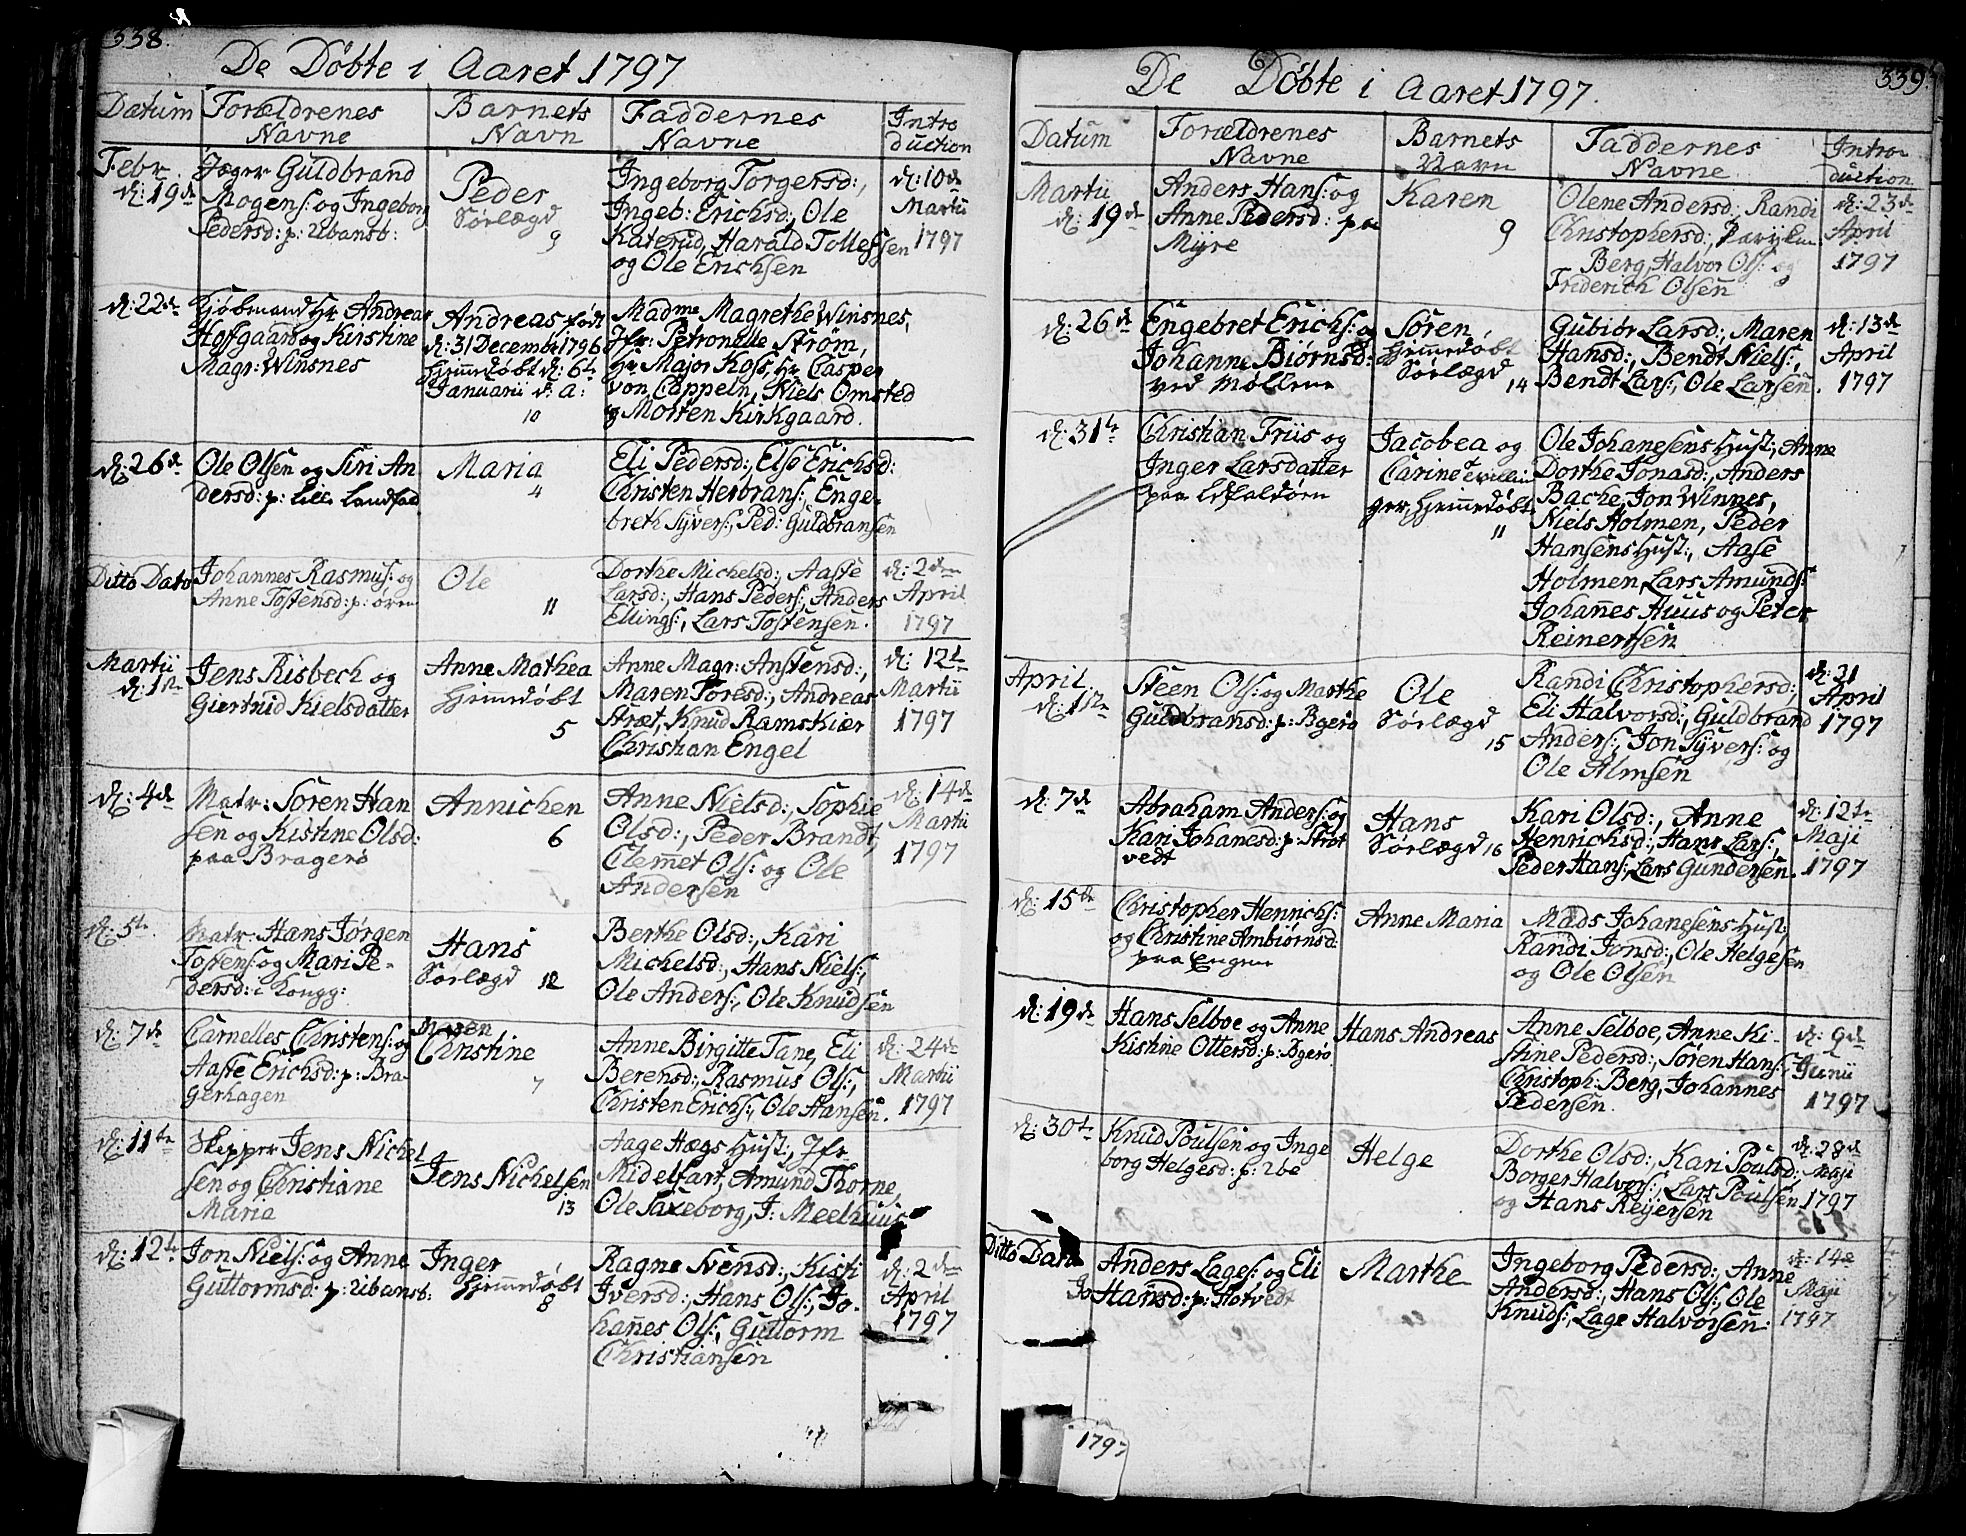 338.
De Døbte i Aaret 1797
Datum
Forældrenes
Navne
Barnets
Navn
Faddernes
Navne
Intro
duction
Febr.
d: 19de
Jæger Guldbrand
Mogens: og Ingeborg
Pedersd: p: Ubansb:
Peder
Sørlægd
9
Ingeborg Torgersd:,
Ingeb: Erichsd:, Ole
Katerud, Harald Tollefssen
og Ole Erichsen
d: 10de
Martii
1797
d: 22de
Kjøbmand Hr Andreas
Hofgaard og Kirstine
Magr: Winsnes
Andreas født
d: 31 December 1796
hjemedøbt d: 6te
Januarii d: a:
10
Madme Magrethe Winsnes,
Jfr: Petronelle Strøm,
Hr Major Koss, Hr Casper
von Cappeln, Niels Omsted
og Morten Kirkgaard.
d: 26de
Ole Olsen og Siri An
dersd: p: Lille Landfald
Maria
4
Eli Pedersd:, Else Erichsd:
Christen Herbrans:, Enge-
breth Syvers:, Ped: Guldbransen
Ditto Dato
Johannes Rasmus: og
Anne Tostensd: p: Øren
Ole
11
Dorthe Michelsd:, Aasse
Larsd:, Hans Peders:, Anders
Ellings:, Lars Tostensen.
d: 2den
April
1797
Martii
d: 1ste
Jens Risbech og
Giertrud Kielsdatter
Anne Mathea
Hjemedøbt
5
Anne Magr: Anstensd:,
Maren Toresd:, Andreas
Stræt, Knud Ramskiær
Christian Engel
d: 12te
Martii
1797
d: 4de
Matr: Søren Han
sen og Kistine Olsd:
paa Bragerø
Annichen
6
Anne Nielsd:, Sophie
Olsd:, Peder Brandt,
Clemet Ols: og Ole
Andersen
d: 14de
Martii
1797
d: 5te.
Matr: Hans Jørgen
Tostens: og Mari Pe-
dersd: i Kongg:
Hans
Sørlægd 12
Berthe Olsd:, Kari
Michelsd:, Hans Niels:,
Ole Anders:, Ole Knudsen
d: 7de
Carnelles Christens: og
Aasse Erichsd: p: Bra-
gerhagen
Maren
Christine
7
Anne Birgitte Tane, Eli
Berensd:, Rasmus Ols:,
Christen Erichs:, Ole Hansen.
d: 24de
Martii
1797
d: 11te
Skipper Jens Nichel
sen og Christiane
Maria
Jens Nichelsen
13
Aage Hægs Hust:, Jfr
Midelfart, Amund Thorne,
Ole Saxeborg, J: Meelhuus
d: 12te
Jon Niels: og Anne
Guttormsd: p: Ubansb:
Inger
Hjemedøbt
8
Ragne Svensd:, Kisti
Iversd:, Hans Ols:, Jo-
hanes Ols:, Guttorm
Christiansen
d: 2den
April
1797
339.
De Døbte i Aaret 1797.
Datum
Forældrenes
Navne
Barnets
Navn
Faddernes
Navne
Intro-
duction
Martii
d: 19de
Anders Hans: og
Anne Pedersd: paa
Myre
Karen
9
Olene Andersd:, Randi
Christophersd:,
Berg, Halvor Ols: og
Friderich Olsen
d: 23de
April
1797
d: 26de
Engebret Erichs: og
Johanne Biørnsd:
ved Møllene
Søren
hjemedøbt
Sørlægd
14
Gubiør Larsd:, Maren
Hansd:, Bendt Niels:,
Bendt Lars:, Ole Larsen.
d: 13de
April
1797
d: 31te
Christian Friis og
Inger Larsdatter
paa
Jacobea og
Carine
ger, hjemedøbt
11
Ole Johanesens Hust:, Anne
Dorthe Jonasd:, Anders
Bache, Jon Winnes,
Niels Holmen, Peder
Hansens Hust:, Aase
Holmen, Lars Amunds:
Johannes Huus og Peter
Reinertsen
April
d: 1ste
Steen Ols: og Marthe
Guldbransd: p: Bgerø
Ole
Sørlægd
15
Randi Christophersd:,
Eli Halvorsd:, Guldbrand
Anders:, Jon Syvers: og
Ole Almsen
d: 21
April
1797
d: 7de
Abraham Anders: og
Kari Johanesd: p: Strøt
vedt
Hans
Sørlægd 16
Kari Olsd:, Anne
Henrichsd:, Hans Lars:,
Peder Hans:, Lars Gundersen.
d: 12te
Maji
1797
d: 15de
Christopher Henrichs:
og Christine Ambiørnsd:
paa Engene
Anne Maria
Mads Johanesens Hust,
Randi Jonsd:, Ole Helgesen
og Ole Olsen
d: 19de
Hans Selboe og Anne
Kistine Ottersd: p: Bgerø
Hans Andreas
Anne Selboe, Anne Ki-
stine Pedersd:, Søren Hans:,
Christoph: Berg, Johannes
Pedersen.
d: 9de
Junii
1797
d: 30te
Knud Poulsen og Inge
borg Helgesd: p:
Helge
Dorthe Olsd:, Kari Poulsd:,
Borger Halvors:, Lars Poulsen
og Hans Reyersen
d: 28de
Maji
1797
Ditto Dato
Anders Lages: og Eli
Hansd: p: Stotvedt
Marthe
Ingeborg Pedersd:, Anne
Andersd:, Hans Ols:, Ole
Knuds:, Lage Halvorsen.
d: 14de
Maji
1797
1797